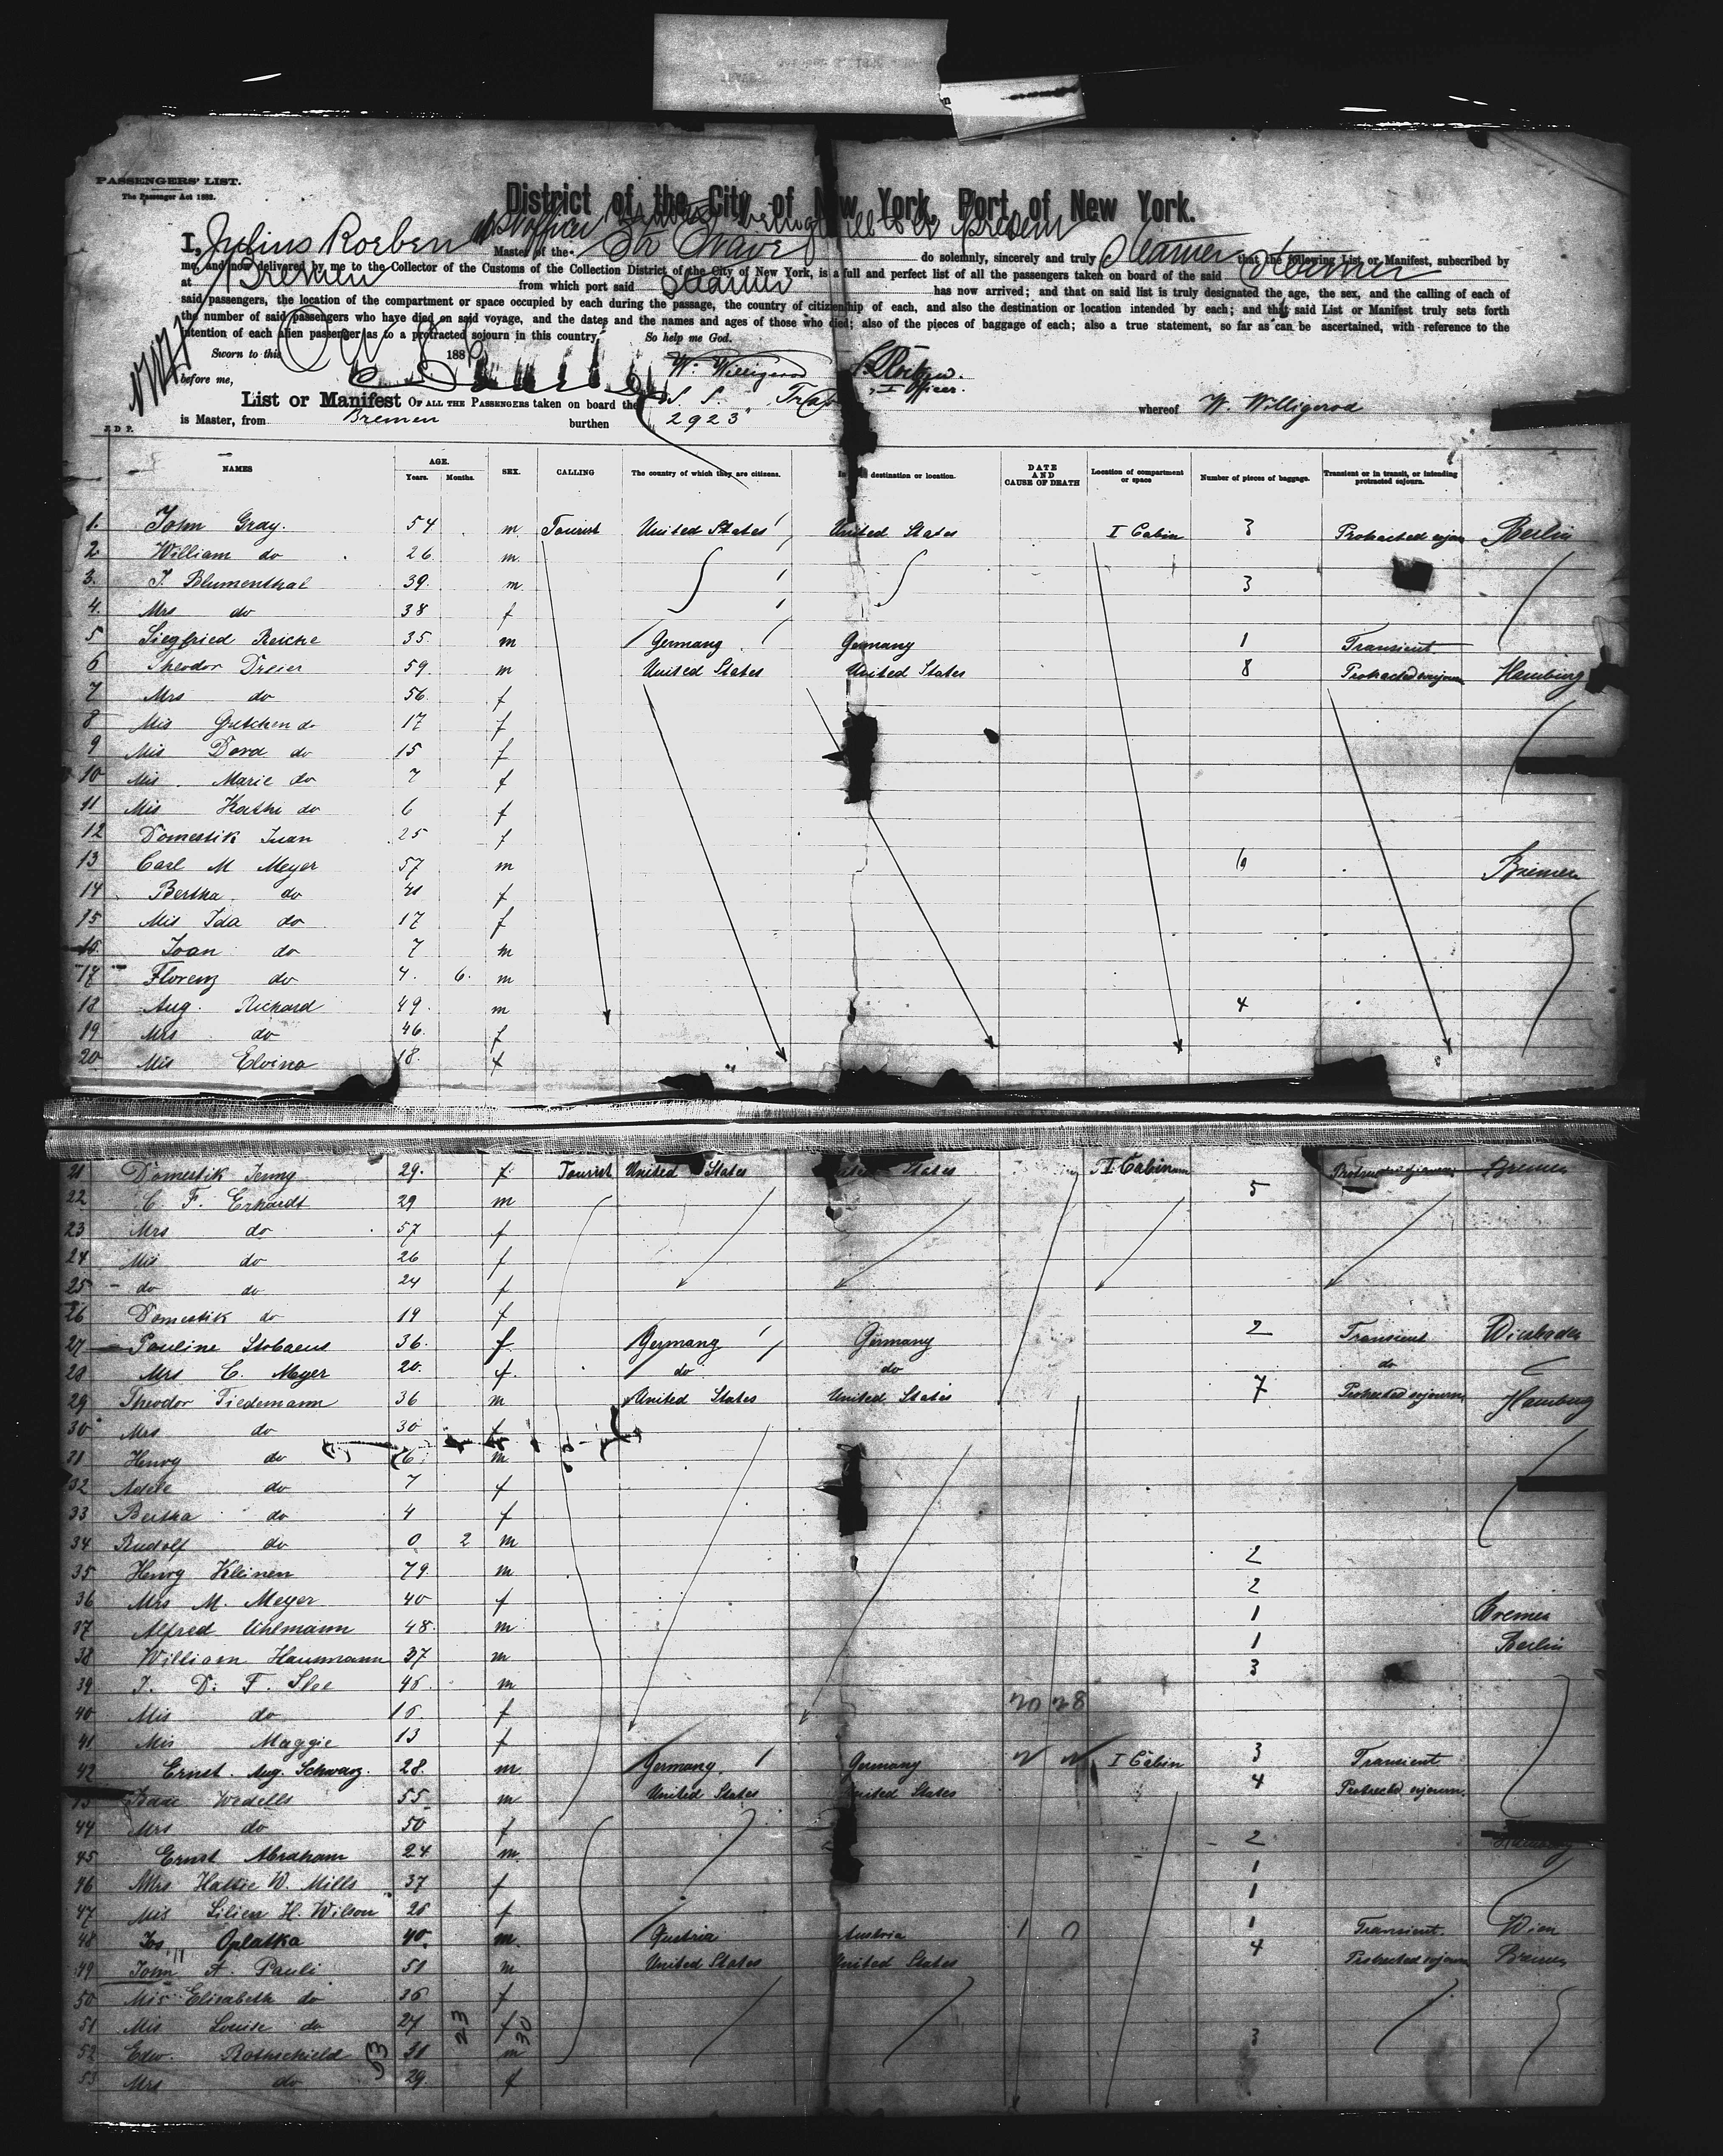 PASSENGERS' LIST.
The Passenger Act 1882.
District of the City of New York, Port of New York.
I, Julius Roeben Master of the Str Trave do solemnly, sincerely and truly that the following List or Manifest, subscribed by
me, and now delivered by me to the Collector of the Customs of the Collection District of the City of New York, is a full and perfect list of all the passengers taken on board of the said Steamer
at Bremen from which port said Steamer has now arrived; and that on said list is truly designated the age, the sex, and the calling of each of
said passengers, the location of the compartment or space occupied by each during the passage, the country of citizenship of each, and also the destination or location intended by each; and that said List or Manifest truly sets forth
the number of said passengers who have died on said voyage, and the dates and the names and ages of those who died; also of the pieces of baggage of each; also a true statement, so far as can be ascertained, with reference to the
intention of each alien passenger as to a protracted sojourn in this country. So help me God.
Sworn to this 188
before me, W. Willigerod
I Officer.
List or Manifest OF ALL THE PASSENGERS taken on board the S. S. Trave whereof W. Willigerod
is Master, from Bremen burthen 2923
NAMES AGE. Years. Months. SEX. CALLING The country of which they are citizens. destination or location. DATE AND CAUSE OF DEATH Location of compartment or space Number of pieces of baggage. Transient or in transit, or intending protracted sojourn.
1. John Gray. 54 m. Tourist United States United States I Cabin 3 Protracted sojourn Berlin
2 William do 26 m.
3. J. Blumenthal 39. m. 3
4. Mrs do 38 f
5 Siegfried Reiche 35. m Germany Germany 1 Transient
6 Theodor Dreier 59. m United States United States 8 Protracted sojourn Hamburg
7 Mrs do 56. f
8 Mis Gretchen do 17 f
9 Mis Dora do 15 f
10 Mis Marie do 7 f
11 Mis Kathe do 6 f
12 Domestik 25 f
13 Carl M Meyer 57 m 6 Bremen
14 Bertha do 41 f
15 Mis Ida do 17 f
16. Joan do 7 m
17 Florenz do 4. 6. m
18 Aug. Richard 49. m 4
19 Mrs do 46. f
20 Mis Elvina 18. f
21 Domestik Jenny 29. f Tourist United States United States I Cabin Protracted sojourn Bremen
22 C F. Erhardt 29 m 5
23 Mrs do 57 f
24 Mis do 26 f
25 do do 24 f
26 Domestik do 19 f
27 Pauline Stobaeus 36. f Germany Germany 2 Transient Wiesbaden
28 Mrs C. Meyer 20. f. do do do
29 Theodor Tiedemann 36 m United States United States 7 Protracted sojourn Hamburg
30 Mrs do 30 f
31 Henry do 6. m
32 Adele do 7 f
33 Bertha do 4 f
34 Rudolf do 0 2 m
35 Henry Kleinen 79. m 2
36 Mrs M. Meyer 40 f 2
37 Alfred Uhlmann 48. m 1 Bremen
38 William Haumann 37 m 1 Berlin
39 J. D. F. Slee 48. m 3
40 Mis do 16. f
41 Mis Maggie 13 f
42 Ernst. Aug. Schwarz. 28. m Germany. Germany I Cabin 3 Transient
Isaac Wedells 55 m United States United States 4 Protracted sojourn.
44 Mrs do 50 f
45 Ernst Abraham 24 m 2
46 Mrs Hattie W. Mills 37 f 1
47 Mis Lilien H. Wilson 26 f 1
48 Jos. Oplatka 40. m. Austria Austria 1 Transient. Wien
49 John A. Pauli 51 m United States United States 4 Protracted sojourn Bremen
50 Mis Elisabeth do 26 f
51 Mis Louise do 24 f
52 Edw. Rothschield 31 m 3
53 Mrs do 29. f